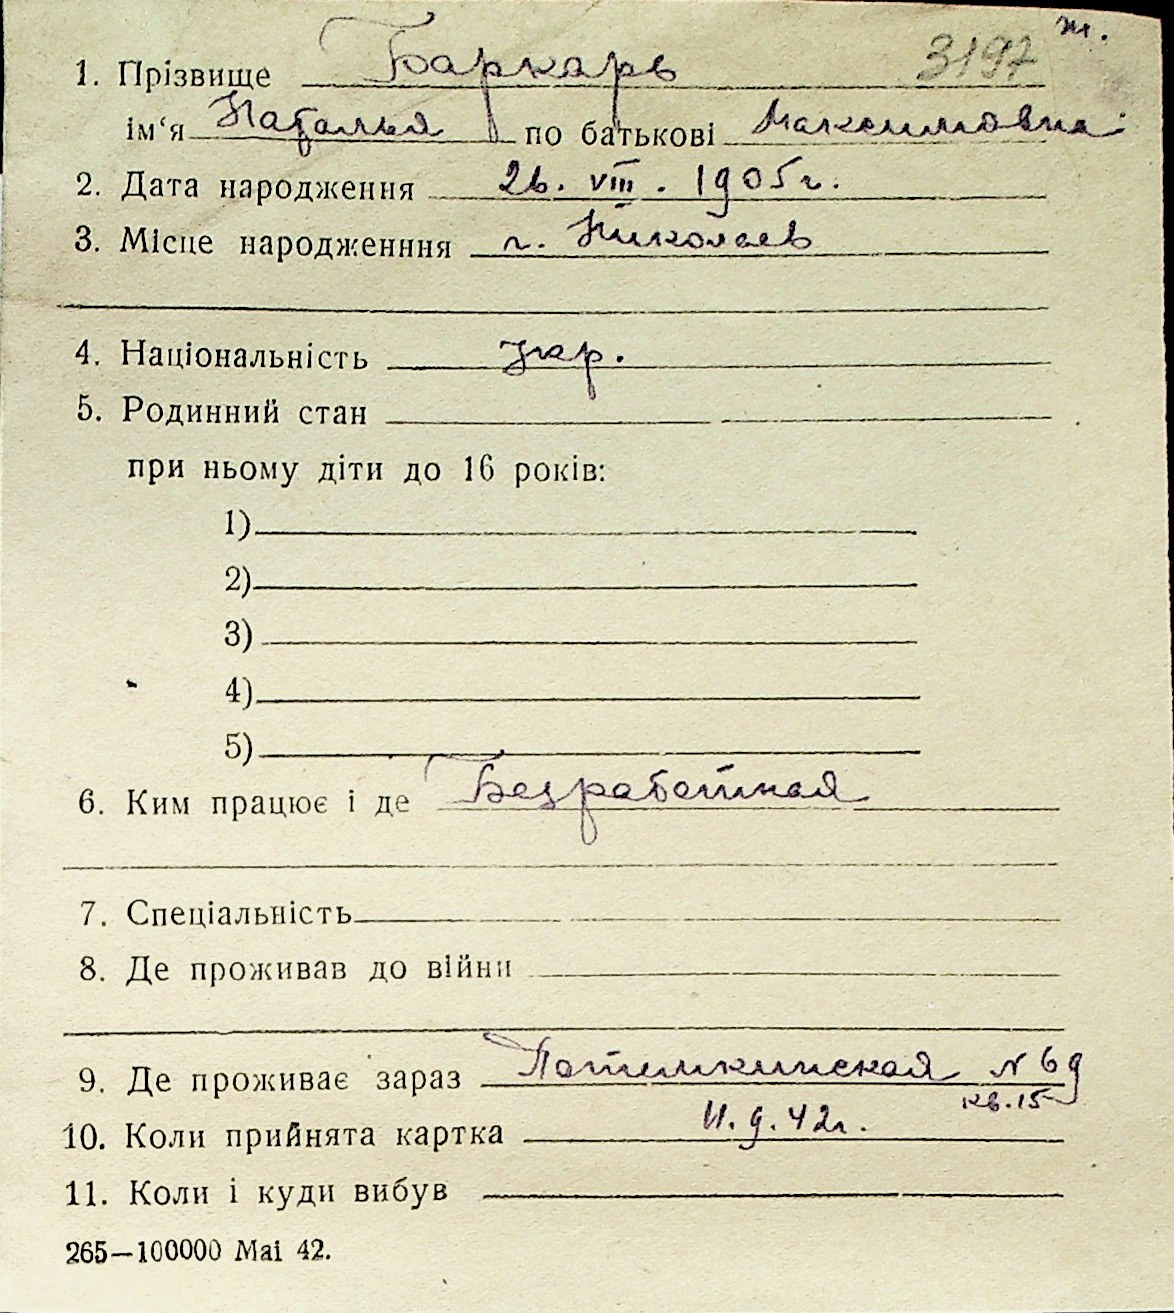 ж.
3197
1. Прізвище Баркарь
ім‘я Наталья по батькові Максимовна
2. Дата народження 26. VIII. 1905г.
3. Місце народженння г. Николаев
4. Національність укр.
5. Родинний стан
при ньому діти до 16 років:
1)
2)
3)
4)
5)
6. Ким працює і де Безработная
7. Спеціальність
8. Де проживав до війни
9. Де проживає зараз Потемкинская № 69
кв. 15
10. Коли прийнята картка 11. 9. 42г.
11. Коли і куди вибув
265—100000 Mai 42.